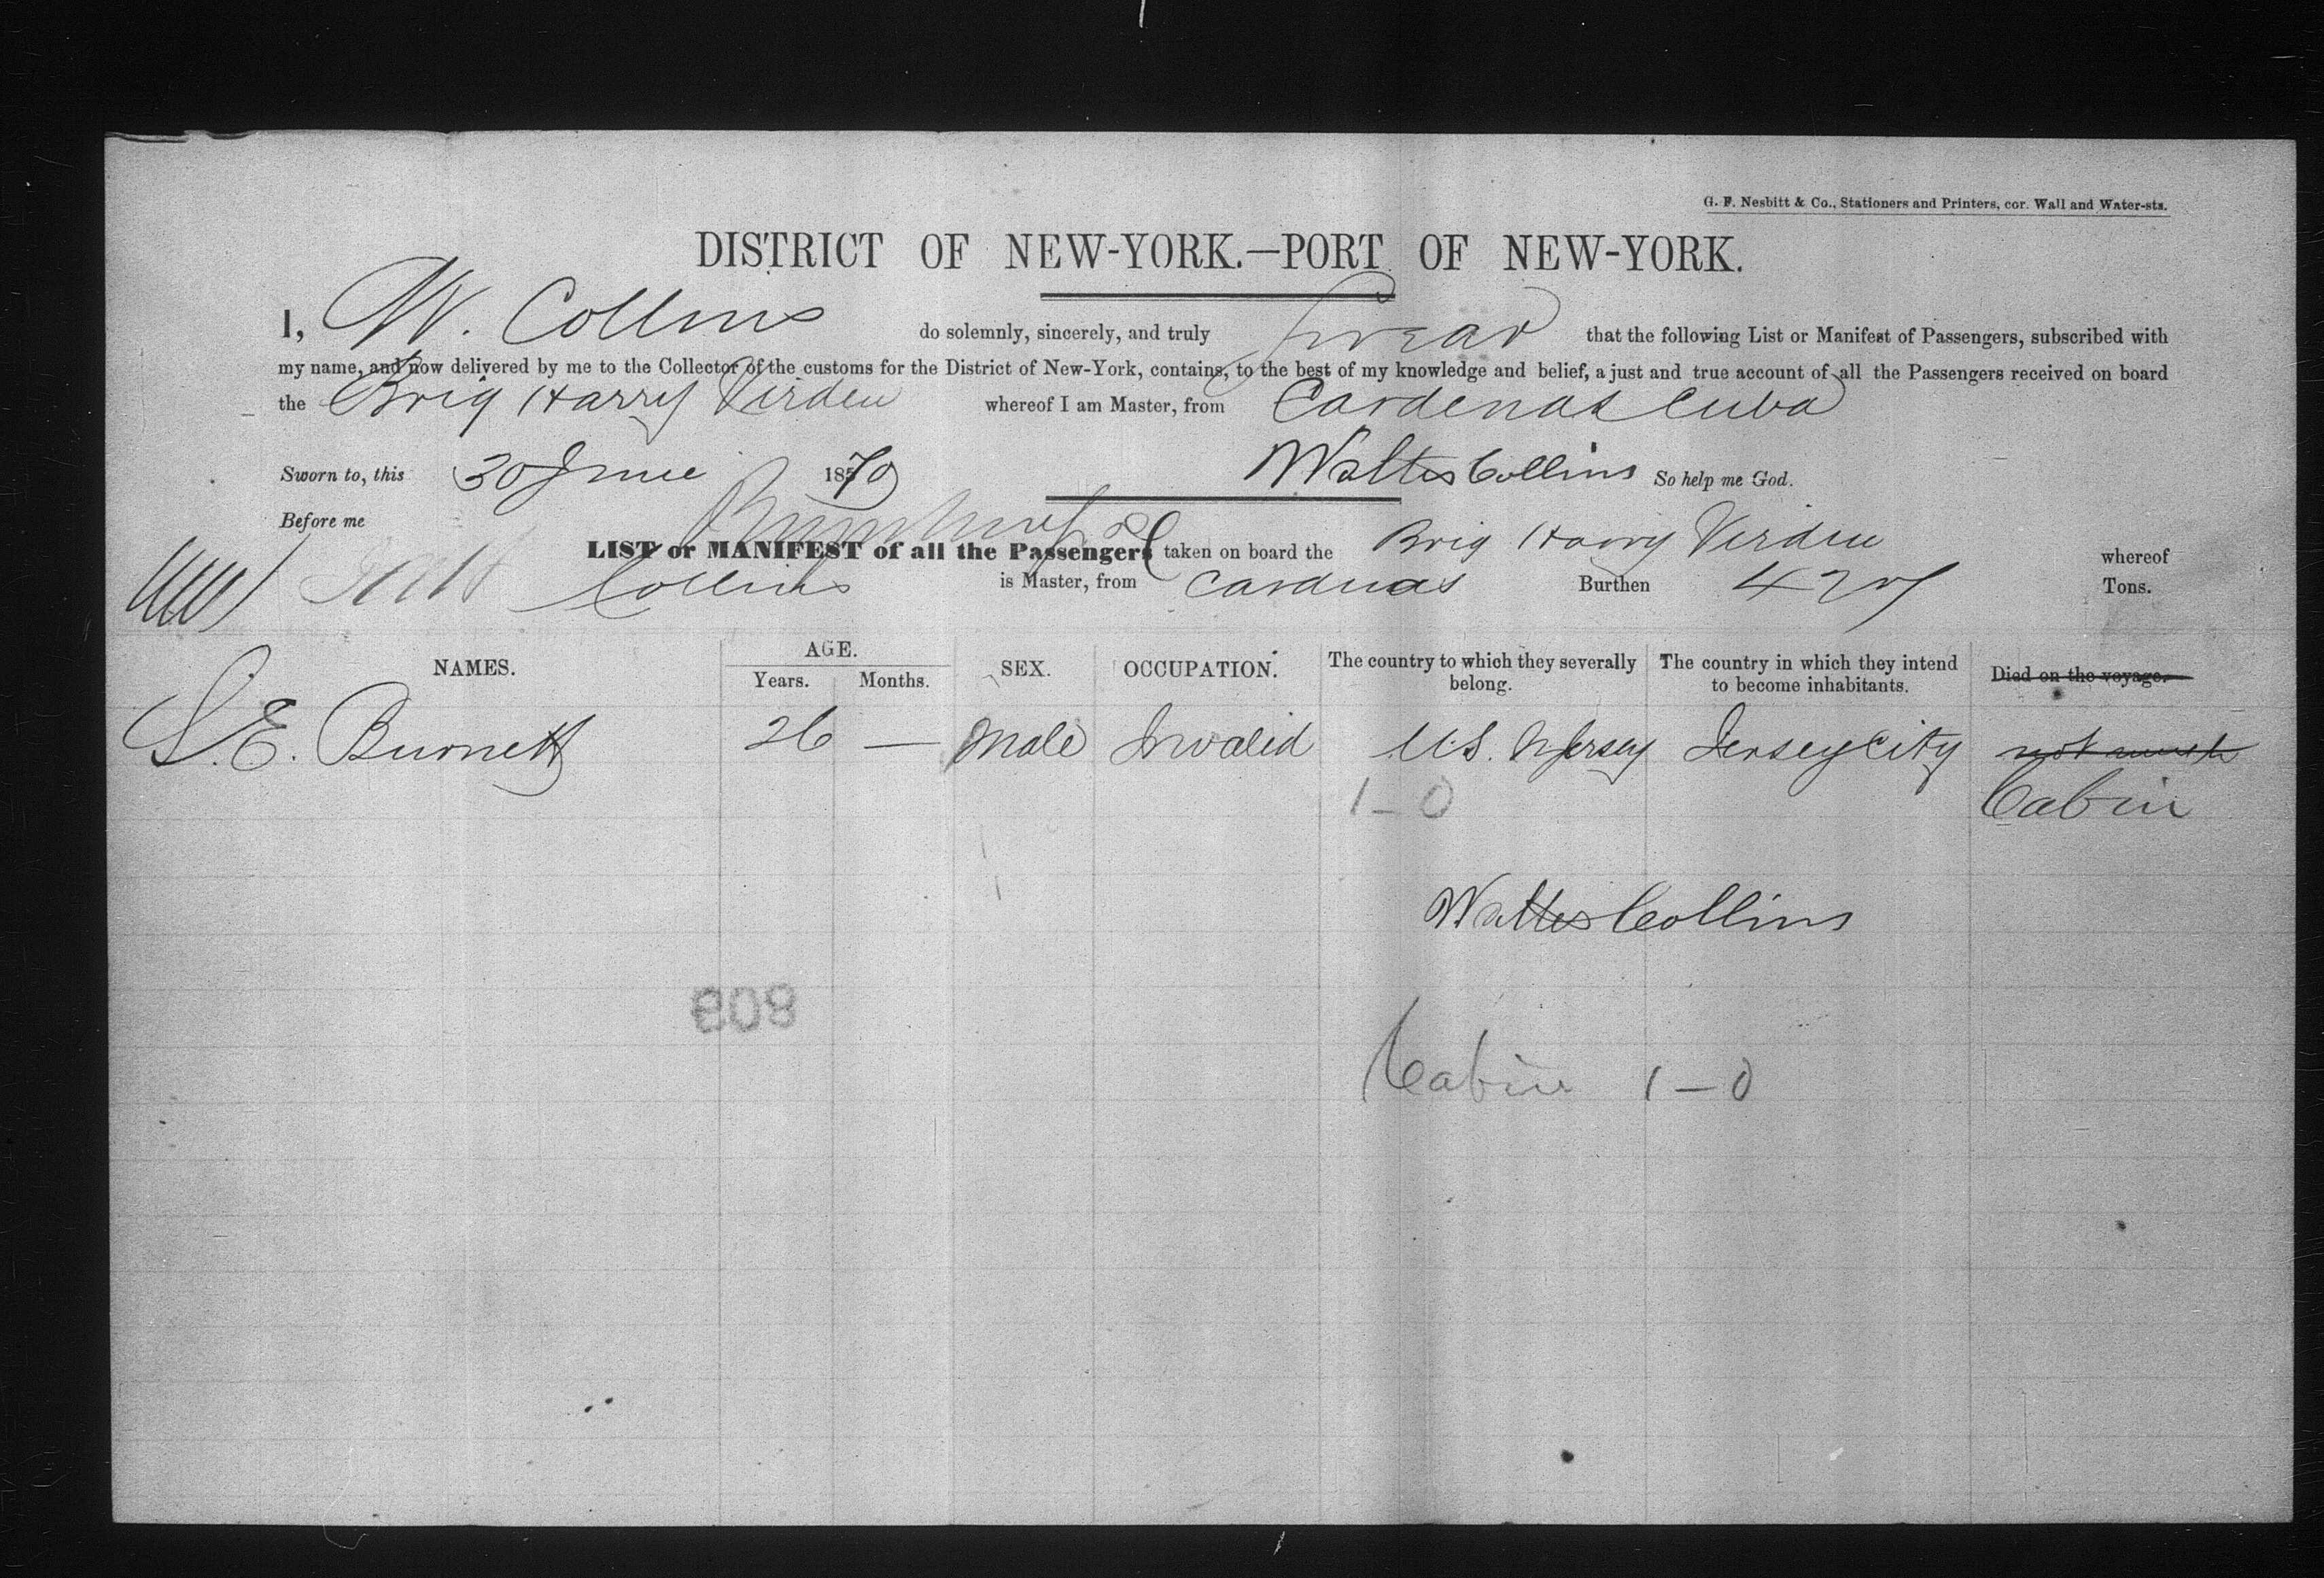 G. F. Nesbitt & Co., Stationers and Printers, cor. Wall and Water-sts.
DISTRICT OF NEW-YORK.—PORT OF NEW-YORK.
I, W. Collins do solemnly, sincerely, and truly swear that the following List or Manifest of Passengers, subscribed with
my name, and now delivered by me to the Collector of the customs for the District of New-York, contains, to the best of my knowledge and belief, a just and true account of all the Passengers received on board
the Brig Harry Virden whereof I am Master, from Cardenas Cuba
Sworn to, this 30 June 1870 Walter Collins So help me God.
Before me
LIST or MANIFEST of all the Passengers taken on board the Brig Harry Virden whereof
Collins is Master, from Cardenas Burthen Tons.
NAMES. AGE. Years. Months. SEX. OCCUPATION. The country to which they severally belong. The country in which they intend to become inhabitants. Died on the voyage.
S. E. Burnett 26 — Male Invalid U.S. N Jersey Jersey City
1 – 0 Cabin
Walter Collins
808
Cabin 1 – 0